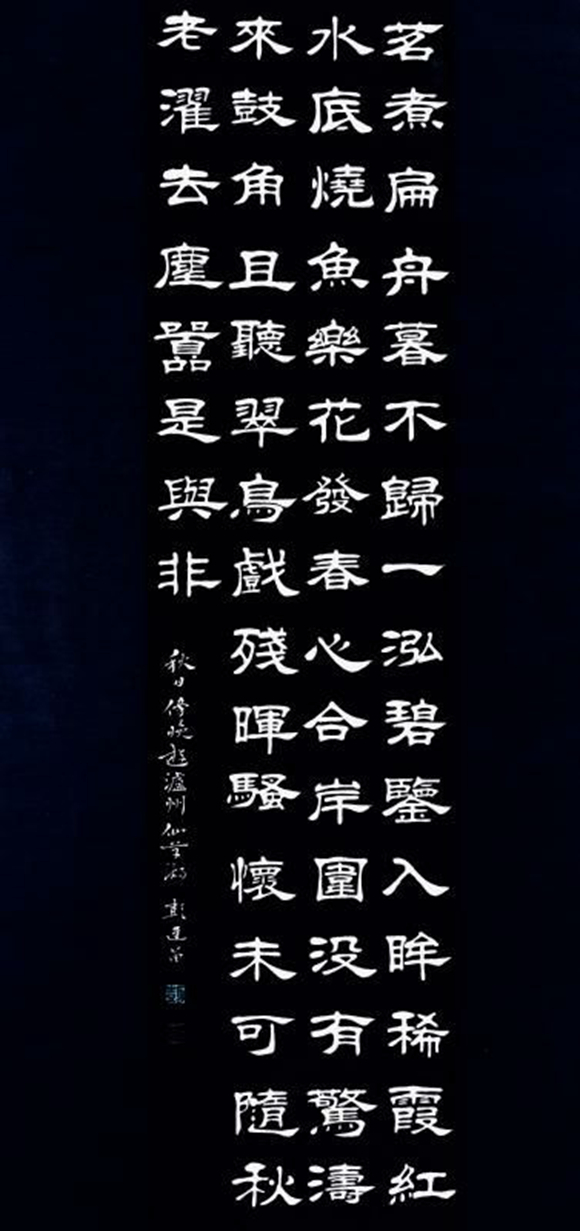 茗煮扁舟暮不歸一泓碧鑒入眸稀霞紅
水底燒魚樂花發春心合岸圍没有驚濤
來鼓角且聽翠鳥戲殘暉騷懷未可隨秋
老濯去塵囂是與非
秋日傍晚遊瀘州仙 湖 彭